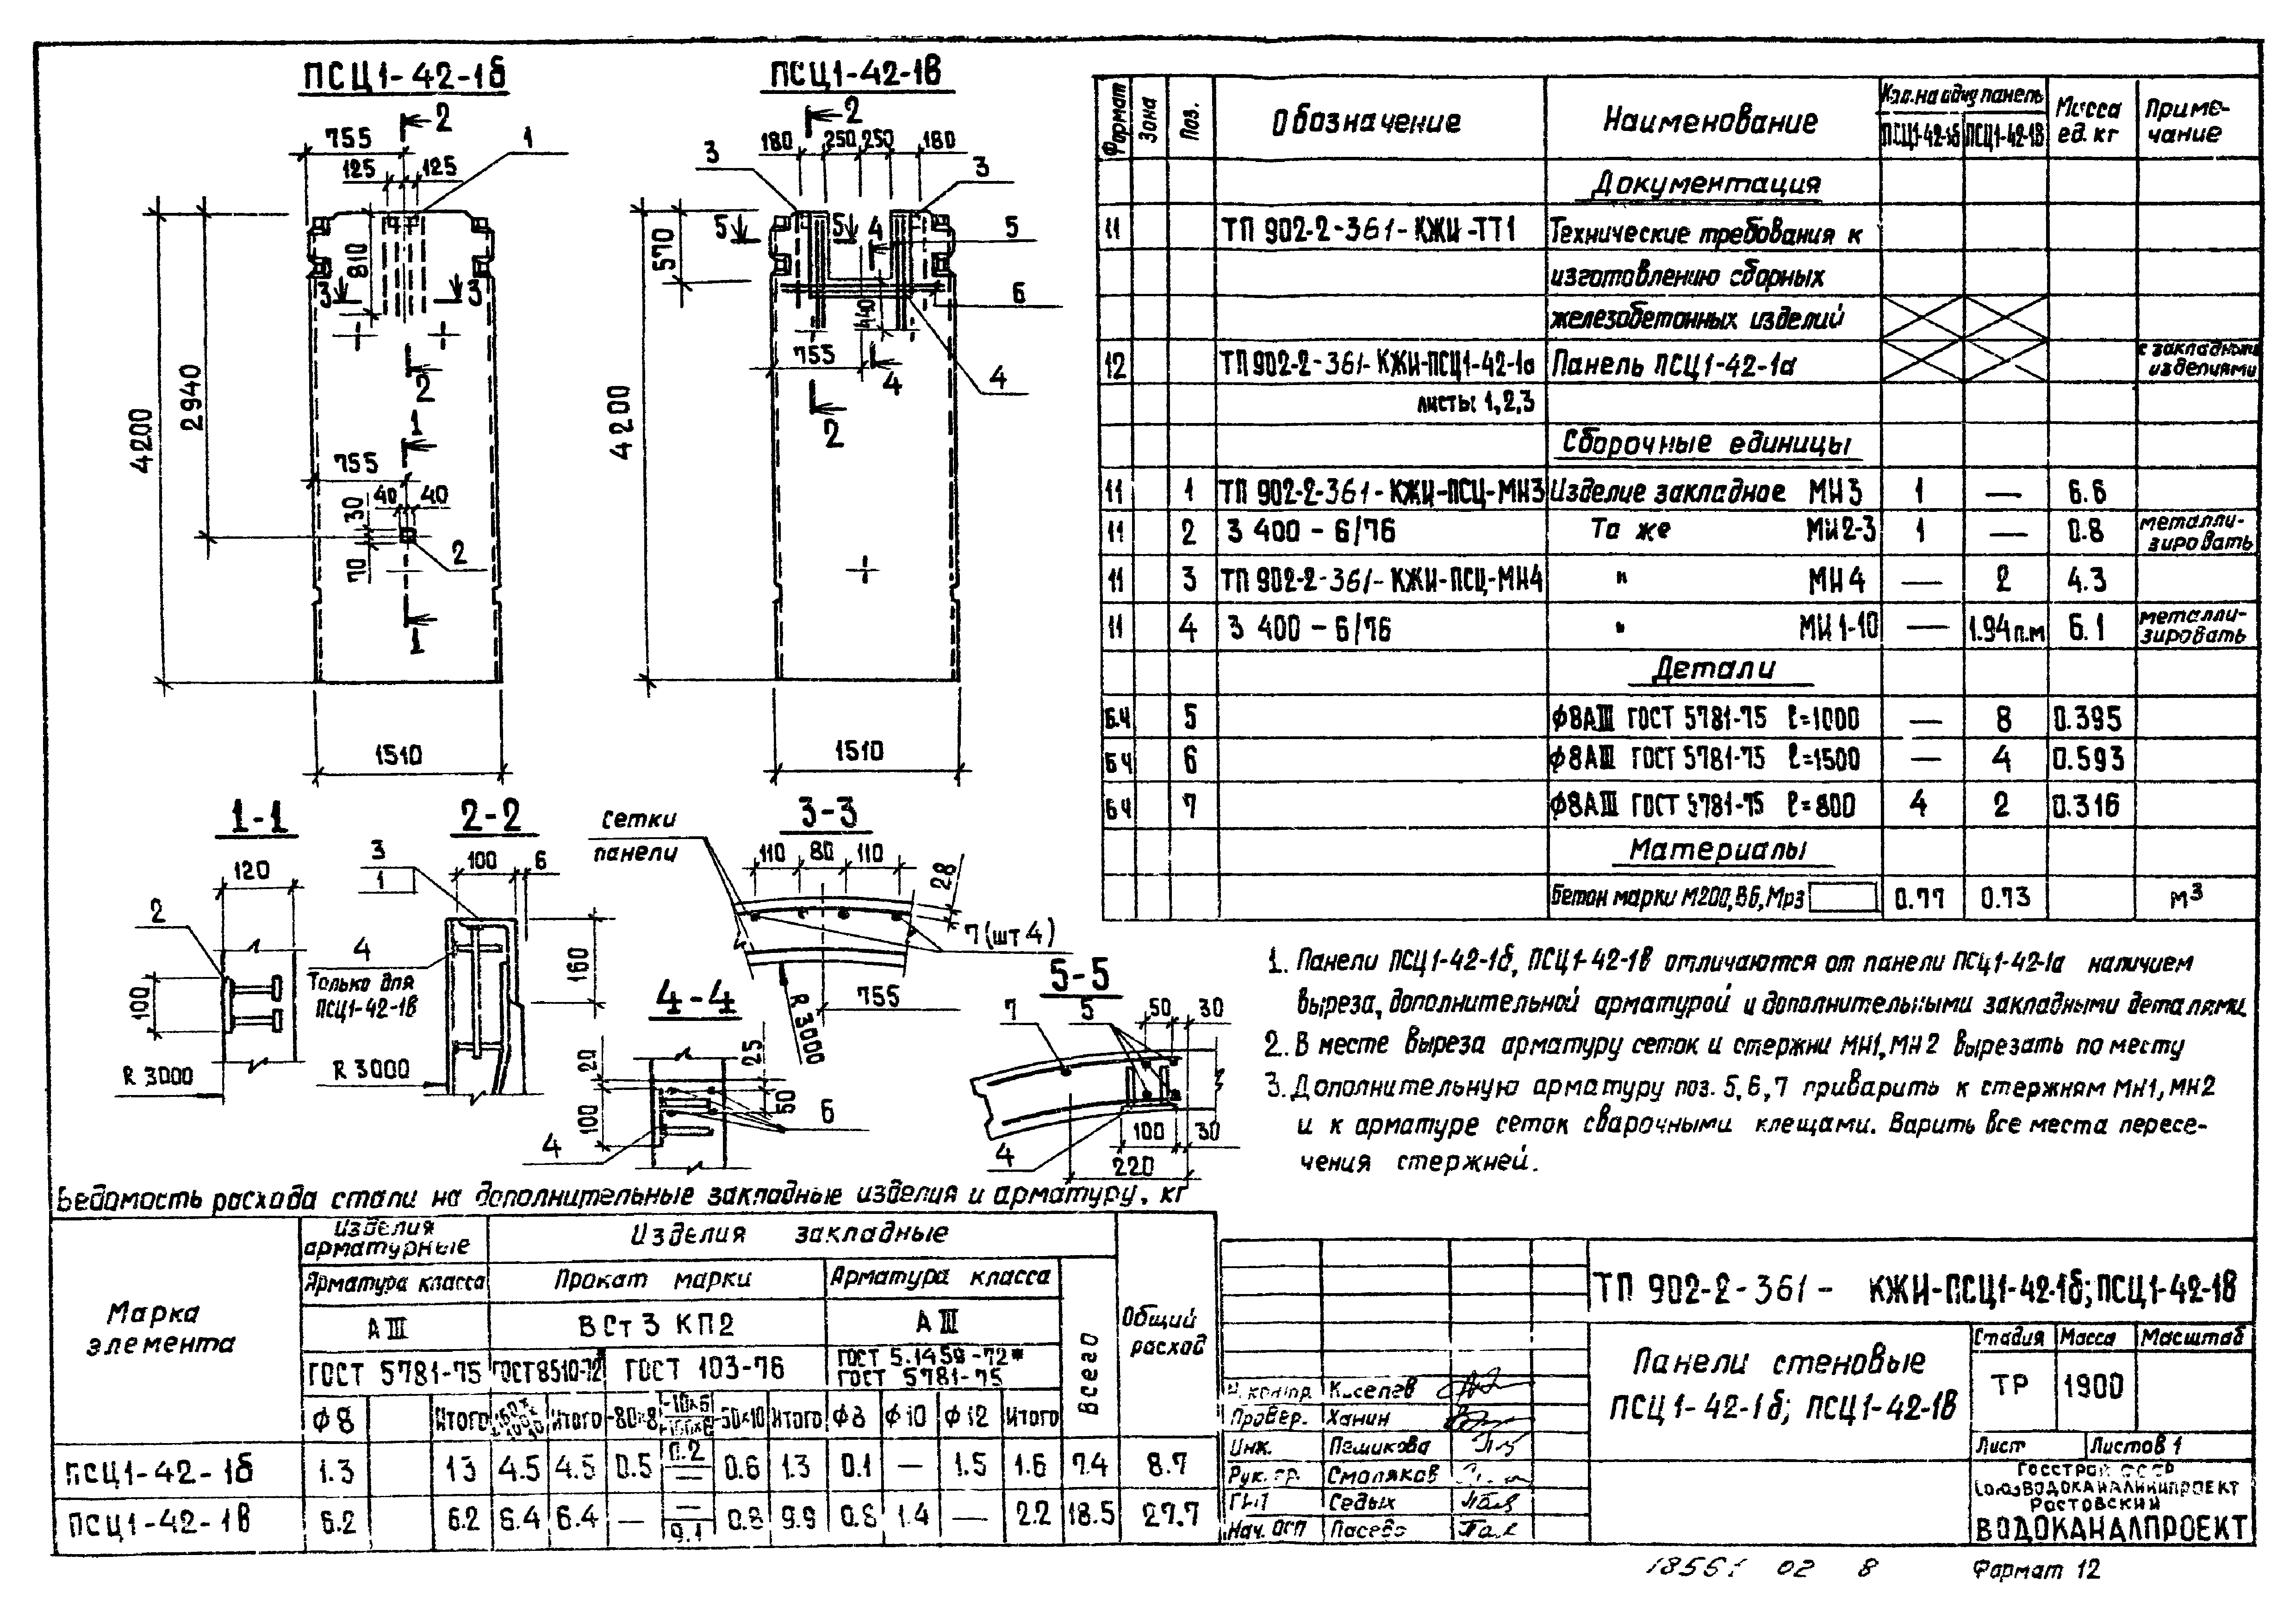 ПСЦ1-42-1б
2
755
1
125 125
810
3 3
2
2940
4200
1
755
40 40
30
70
2
1
1510
ПСЦ1-42-1в
2
180 250 250 180
3 3
5 5 4 5
570
6
440
755
4 4
2
4200
1510
1-1
120
2
100
R 3000
2-2
3
1
100 6
4
Только для
ПСЦ1-42-1в
160
R 3000
3-3
Сетки
панели
110 80 110
28
7 (шт 4)
755
R 3000
4-4
20
25
100
50
6
4
5-5
7 5 50 30
4
100 30
220
Формат Зона Поз. Обозначение Наименование Кол. на одну панель Масса ед. кг Приме-чание
ПСЦ1-42-1б ПСЦ1-42-1в
Документация
11 ТП 902-2-361-КЖИ-ТТ1 Технические требования к
изготовлению сборных
железобетонных изделий
12 ТП 902-2-361-КЖИ-ПСЦ1-42-1а Панель ПСЦ1-42-1а с закладными изделиями
листы 1,2,3
Сборочные единицы
11 1 ТП 902-2-361-КЖИ-ПСЦ-МН3 Изделие закладное МН3 1 — 6.6
11 2 3 400-6/76 То же МН2-3 1 — 0.8 металли-зировать
11 3 ТП 902-2-361-КЖИ-ПСЦ-МН4 " МН4 — 2 4.3
11 4 3 400-6/76 " МН1-10 — 1.94 п.м 6.1 металли-зировать
Детали
Б.Ч 5 ф8АIII ГОСТ 5781-75 ℓ=1000 — 8 0.395
БЧ 6 ф8АIII ГОСТ 5781-75 ℓ=1500 — 4 0.593
БЧ 7 ф8АIII ГОСТ 5781-75 ℓ=800 4 2 0.316
Материалы
Бетон марки М200, В6, Мрз 0.77 0.73 м3
1. Панели ПСЦ1-42-1б, ПСЦ1-42-1в отличаются от панели ПСЦ1-42-1а наличием
выреза, дополнительной арматурой и дополнительными закладными деталями.
2. В месте выреза арматуру сеток и стержни МН1, МН2 вырезать по месту
3. Дополнительную арматуру поз. 5,6,7 приварить к стержням МН1, МН2
и к арматуре сеток сварочными клещами. Варить все места пересе-
чения стержней.
Ведомость расхода стали на дополнительные закладные изделия и арматуру, кг
Марка элемента Изделия арматурные Изделия закладные Общий расход
Арматура класса Прокат марки Арматура класса Всего
АIII ВСт3 КП2 АIII
ГОСТ 5781-75 ГОСТ 8510-72* ГОСТ 103-76 ГОСТ 5.1459-72* ГОСТ 5781-75
ф8 Итого Итого -80×8 -50×10 Итого ф8 ф10 ф12 Итого
ПСЦ1-42-1б 1.3 13 4.5 4.5 0.5 0.2 — 0.6 1.3 0.1 — 1.5 1.6 7.4 8.7
ПСЦ1-42-1в 6.2 6.2 6.4 6.4 — — 9.1 0.8 9.9 0.8 1.4 — 2.2 18.5 27.7
ТП 902-2-361- КЖИ-ПСЦ1-42-1б; ПСЦ1-42-1в
Панели стеновые
ПСЦ1-42-1б; ПСЦ1-42-1в
Стадия Масса Масштаб
ТР 1900
Лист Листов 1
Госстрой СССР
Союзводоканалниипроект
Ростовский
ВОДОКАНАЛПРОЕКТ
Н. контр. Киселев
Провер. Ханин
Инж. Пешикова
Рук. гр. Смоляков
ГИП Седых
Нач. ОСП
18551 02 8
Формат 12